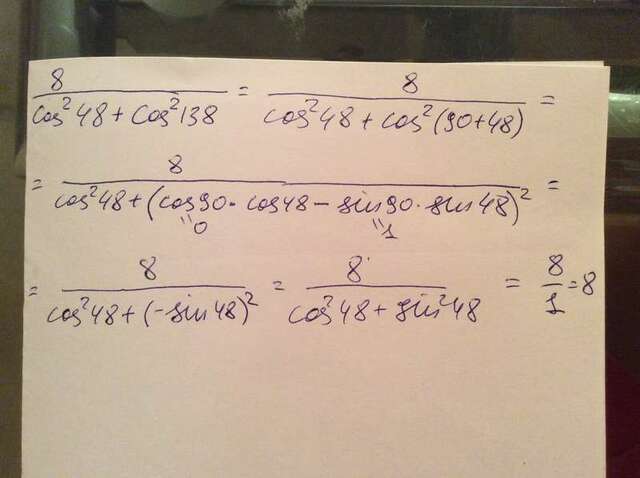 8/(cos²48 + cos²138) = 8/(cos²48 + cos²(90+48)) =
= 8/(cos²48 + (cos90·cos48 − sin90·sin48)²) =
"0 "1
= 8/(cos²48 + (−sin48)²) = 8/(cos²48 + sin²48) = 8/1 = 8